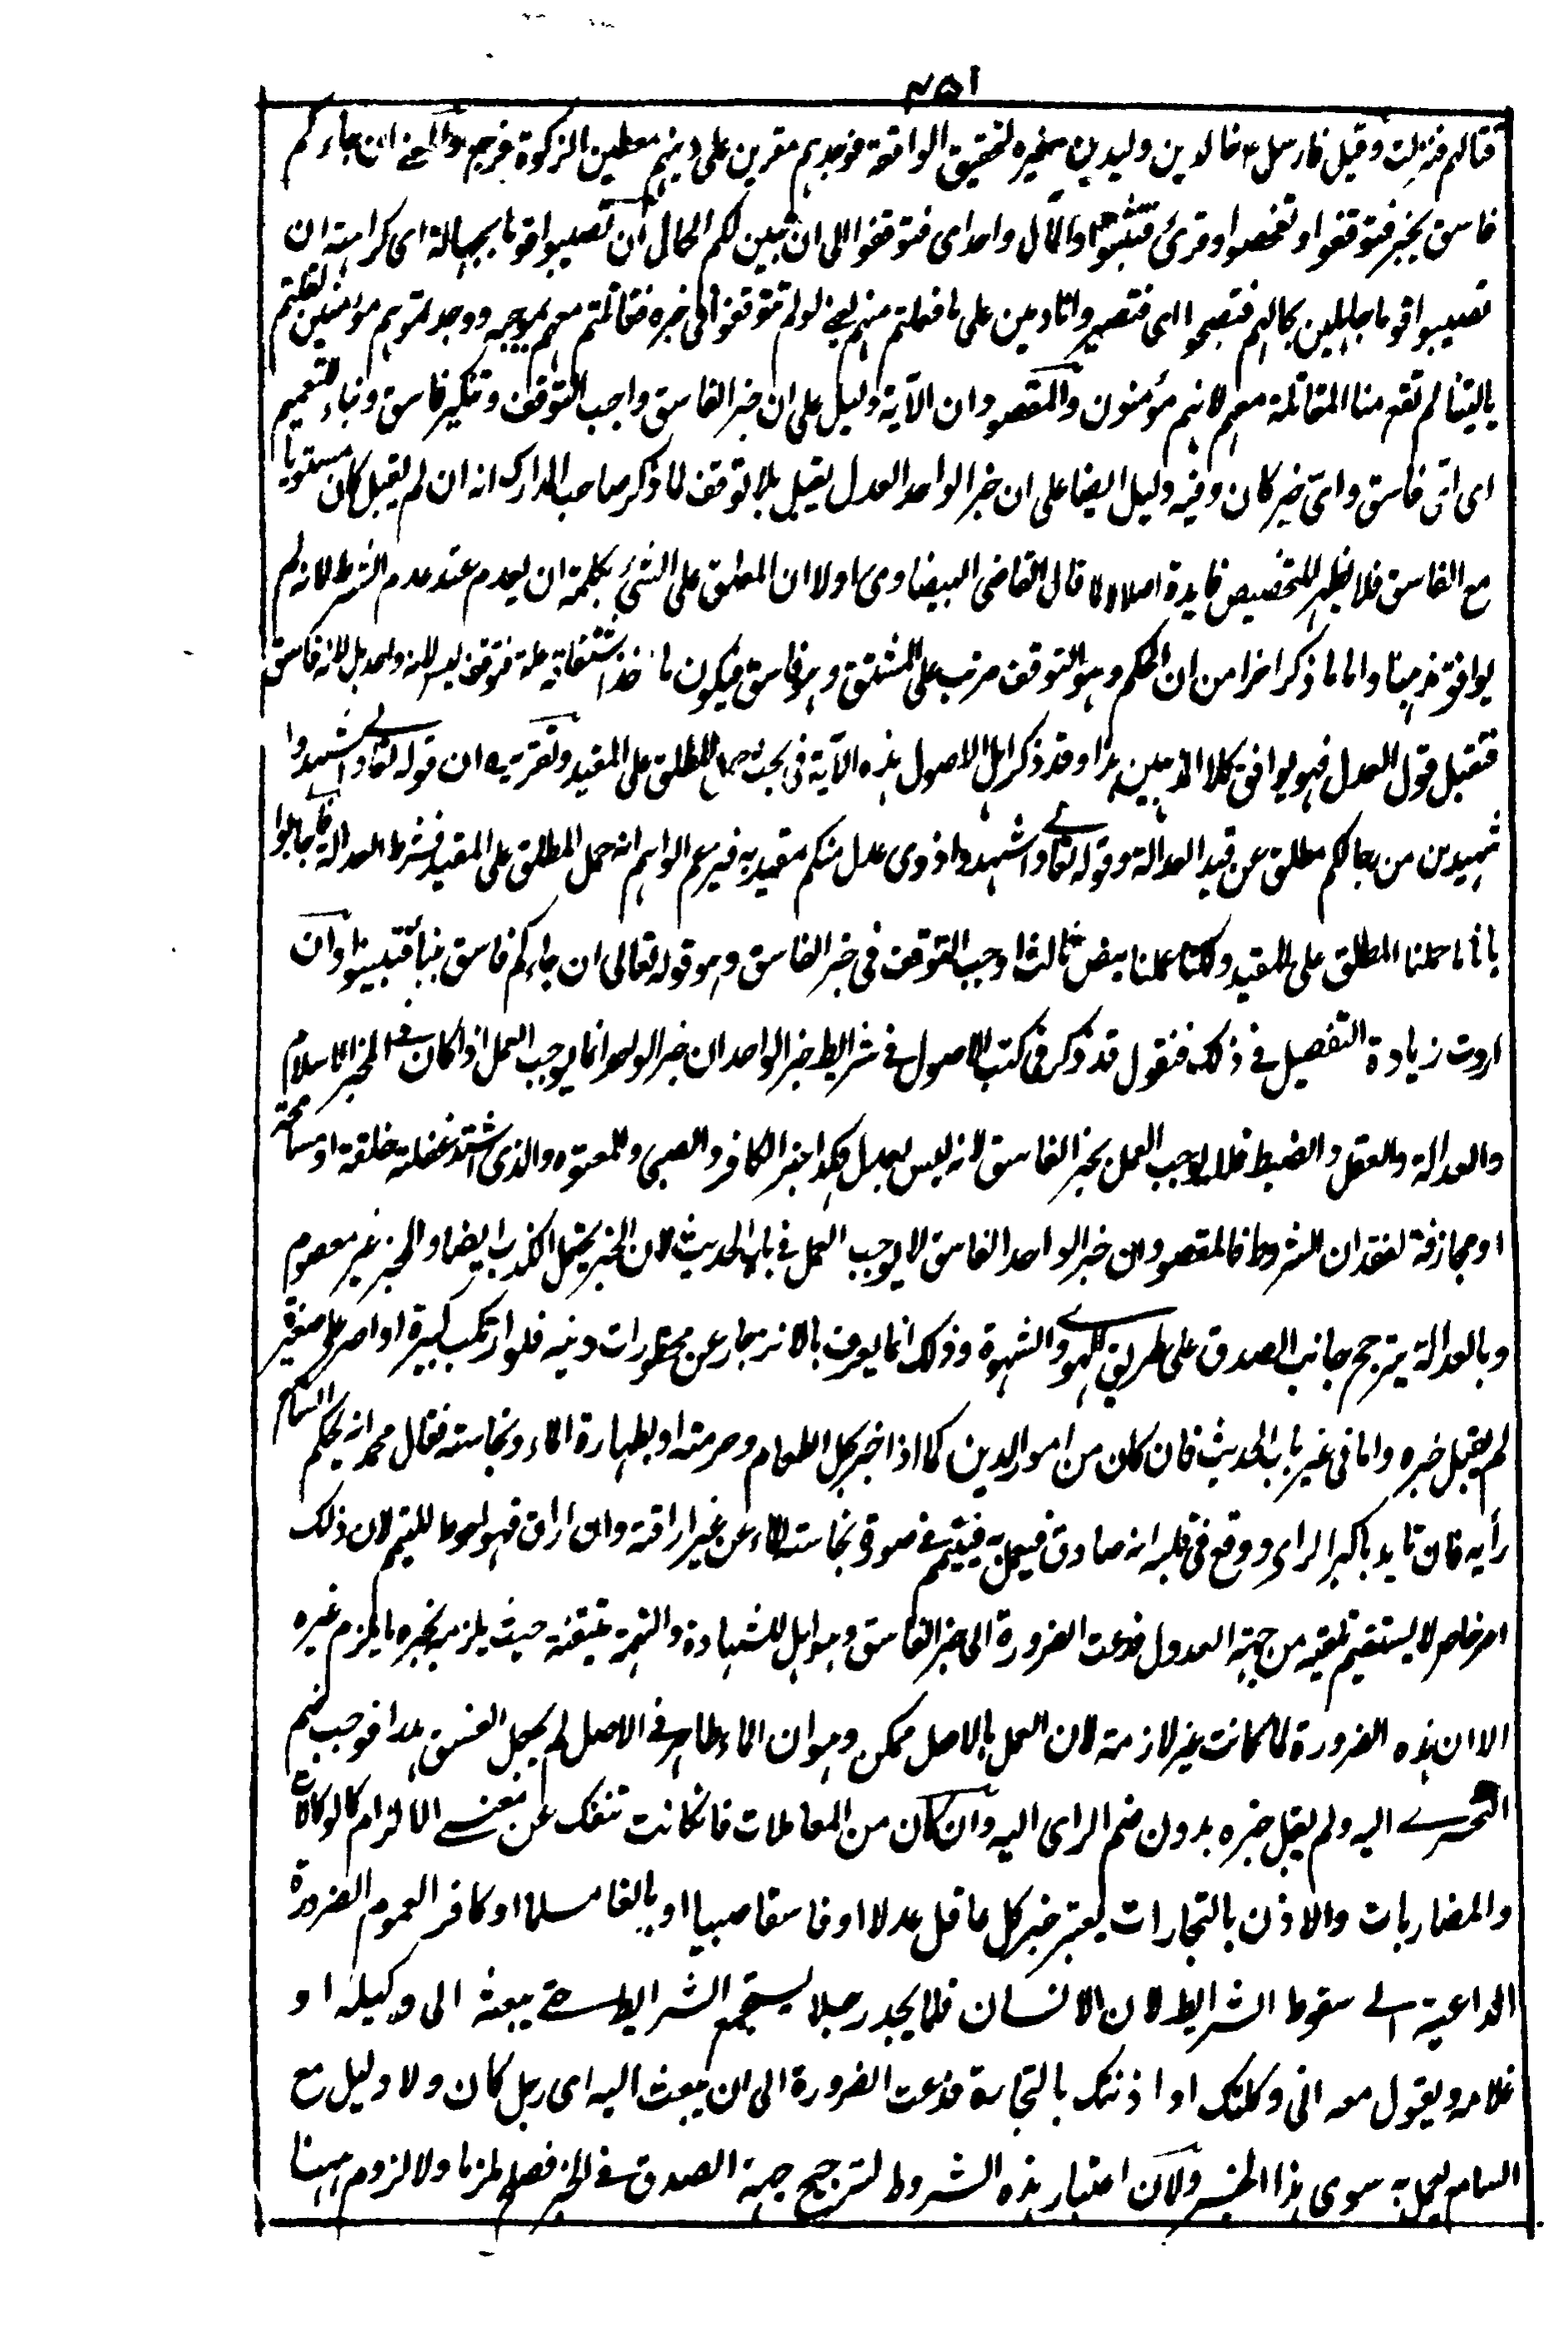 ٤٥١
قتالهم فنزلت وقيل فارسل ع خالد بن وليد بن مغيرة لتحقيق الواقعة فوجدهم مقرين على دينهم معطين الزكوة فرجع والمعنى ان جاءكم
فاسق بخبر فتوقفوا وتفحصوا وقرئ فتثبتوا والمآل واحد اى فتوقفوا الى ان تبين لكم الحال ان تصيبوا قوما بجهالة اى كراهته ان
تصيبوا قوما جاهلين بحالهم فتصبحوا اى فتصيروا نادمين على ما فعلتم منهم يعنى لو لم تتوقفوا فى خبره فقاتلتم معهم بموجبه ووجدتموهم مؤمنين لقلتم
يا ليتنا لم تقع منا المقاتلة معهم لانهم مؤمنون والمقصود ان الآية دليل على ان خبر الفاسق واجب التوقف وتنكير فاسق ونباء للتعميم
اى اى فاسق واى خبر كان وفيه دليل ايضا على ان خبر الواحد العدل يقبل بلا توقف لما ذكر صاحب المدارك انه ان لم يقبل كان مستويا
مع الفاسق فلا يظهر للتخصيص فايدة اصلا لا لما قال القاضى البيضاوى اولا ان المعلق على الشئ بكلمة ان يعدم عند عدم الشرط لانه لم
يوافق مذهبنا واما ما ذكر اخرا من ان الحكم وهو التوقف مرتب على المشتق وهو فاسق فيكون ماخذ اشتقاقه علة فتوقف ليس لانه واحد بل لانه فاسق
فتقبل قول العدل فهو يوافق كلا المذهبين هذا وقد ذكر اهل الاصول هذه الآية فى بحث حمل المطلق على المقيد وتقريره ان قوله تعالى واستشهدوا
شهيدين من رجالكم مطلق عن قيد العدالة وقوله تعالى واشهدوا ذوى عدل منكم مقيد به فيزعم الواهم انه حمل المطلق على المقيد فشرط العدالة فاجابوا
بانا ما حملنا المطلق على المقيد ولكنا عملنا بنص ثالث اوجب التوقف فى خبر الفاسق وهو قوله تعالى ان جاءكم فاسق بنبأ فتبينوا وان
اردت زيادة التفصيل فى ذلك فنقول قد ذكر فى كتب الاصول فى شرايط خبر الواحد ان خبر الواحد انما يوجب العمل اذا كان فى المخبر الاسلام
والعدالة والعقل والضبط فلا يوجب العمل بخبر الفاسق لانه ليس بعدل وكذا خبر الكافر والصبى والمعتوه والذى اشتد غفلته خلقة او مسامحة
او مجازفة لفقدان الشروط فالمقصود ان خبر الواحد الفاسق لا يوجب العمل فى باب الحديث لان الخبر يحتمل الكذب ايضا والمخبر غير معصوم
وبالعدالة يترجح جانب الصدق على طريق الهوى والشهوة وذلك انما يعرف بالانزجار عن محظورات دينه فلو ارتكب كبيرة او اصر على صغيرة
لم يقبل خبره واما فى غير باب الحديث فان كان من امور الدين كما اذا اخبر بحل الطعام وحرمته او بطهارة الماء ونجاسته فقال محمد انه يحكم السامع
رأيه فان تايد باكبر الراى ووقع فى قلبه انه صادق فيعمل به فيتيمم فى صورة نجاسته الماء عن غير اراقته وان اراق فهو احوط للتيمم لان ذلك
امر خاص لا يستقيم تلقيه من جهة العدول فدعت الضرورة الى خبر الفاسق وهو اهل للشهادة والتهمة منتفية حيث يلزمه بخبره ما يلزم غيره
الا ان هذه الضرورة لما كانت غير لازمة لان العمل بالاصل ممكن وهو ان الماء طاهر فى الاصل لم يجعل الفسق هدرا فوجب ضم
التحرى اليه ولم يقبل خبره بدون ضم الراى اليه وان كان من المعاملات فان كانت تنفك عن معنى الالزام كالوكالات
والمضاربات والاذن بالتجارات يعتبر خبر كل عاقل عدلا او فاسقا صبيا او بالغا مسلما او كافر العموم الضرورة
الداعية الى سقوط الشرايط لان الانسان قلما يجد رجلا يستجمع الشرايط حتى يبعثه الى وكيله او
غلامه ويقول معه انى وكلتك او اذنتك بالتجارة فدعت الضرورة الى ان يبعث اليه اى رجل كان ولا دليل مع
السامع يعمل به سوى هذا الخبر ولان اعتبار هذه الشروط لترجيح جهة الصدق فى الخبر فصلح ملزما ولا لزوم ههنا